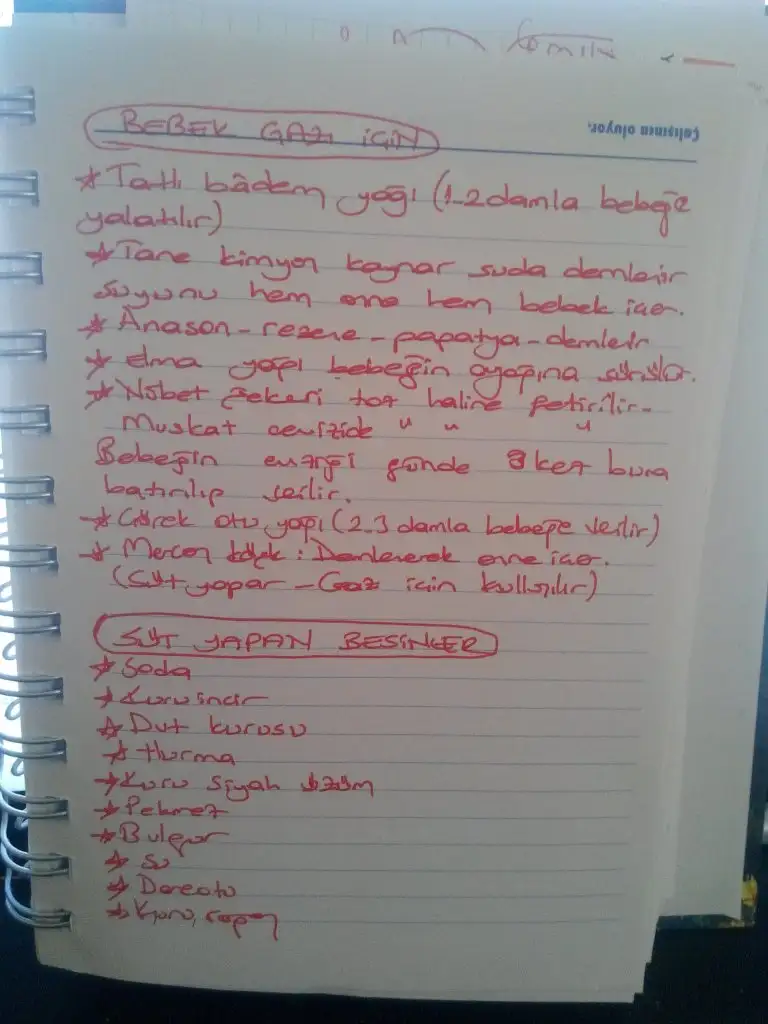 BEBEK GAZI İÇİN
Çalışmen oluyor.
* Tatlı bâdem yağı (1-2 damla bebeğe
yalatılır)
* Tane kimyon kaynar suda demlenir
suyunu hem anne hem bebek içer.
* Anason-rezene-papatya-demlenir
* elma yağı bebeğin ayağına sürülür.
* Nöbet şekeri toz haline getirilir-
Muskat cevizide " " "
Bebeğin emziği günde 3 kez buna
batırılıp verilir.
* Çörek otu yağı (2-3 damla bebeğe verilir)
* Mercan köşk: Demlenerek anne içer.
(Süt yapar-Gaz için kullanılır)
SÜT YAPAN BESİNLER
* Soda
* Kuru incir
* Dut kurusu
* Hurma
* Kuru siyah üzüm
* Pekmez
* Bulgur
* Su
* Dereotu
* Kuru soğan